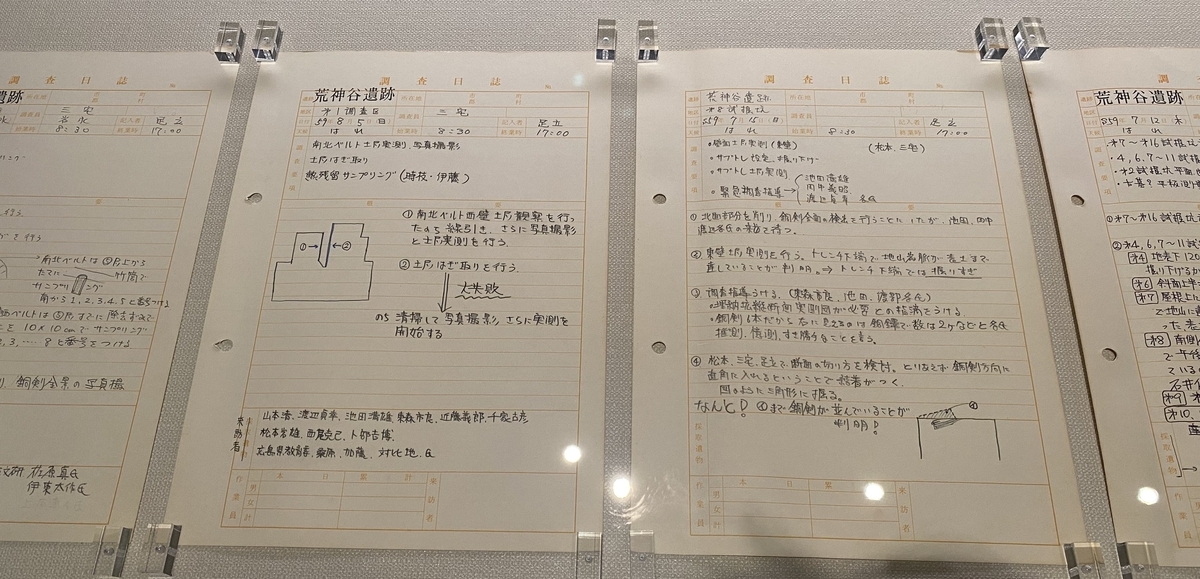 調査日誌
荒神谷遺跡
調査員
三宅
記入者
足立
8:30
17:00
を行う
南北ベルトは
たてに
竹筒で
サンプリング
南から1,2,3,4,5と番号つける
10×10cmでサンプリング
8と番号をつける
銅剣全景の写真撮
佐原真氏
伊東太作氏
調査日誌
荒神谷遺跡
所在地
市郡
町村
オ1調査日
調査員
三宅
記入者
足立
S59・8月5日(日)
はれ
始業時
8:30
終業時
17:00
調査事項
南北ベルト土層実測、写真撮影
土層はぎ取り
熱残留サンプリング(時枝・伊藤)
概要
① 南北ベルト西壁土層観察を行っ
たのち線引き、さらに写真撮影
と土層実測を行う。
② 土層はぎ取りを行う
大失敗
のち清掃して写真撮影、さらに実測を
開始する
①→
←②
来跡者
山本清、渡辺貞幸、池田満雄、東森市良、近藤義郎、千家古彦
松本岩雄、西尾克己、卜部吉博
広島県教育委、桑原、加藤、対比地、氏
作業員
本日
累計
男
女
計
来訪者
調査日誌
荒神谷遺跡
所在地
市郡
町村
オ8試掘坑
調査員
記入者
足立
S59・7月15日(日)
はれ
8:30
17:00
調査事項
・壁面土層実測(東壁)
(松本、三宅)
・サブトレ設定、掘り下げ
・サブトレ土層実測
・緊急調査指導→
池田満雄
田中義昭
渡辺貞幸 各氏
概要
① 北西部分を削り、銅剣全面の検出を行うことにしたが、池田、田中
渡辺各氏の来跡で待つ。
② 東壁土層実測を行う。トレンチ下端で地山岩脈が表土まで
達していることが判明。⇒トレンチ下端では掘りすぎ
③ 調査指導うける。(東森市良、池田、渡部各氏)
・埋納坑縦断面実測図が必要との指摘をうける。
・銅剣6本だから右に見えるのは銅鐸で数は2ヶなどと各氏
推測、憶測、すき勝手なことを言う。
④ 松本、三宅、足立で、断面の切り方を検討。とりあえず銅剣方向に
直角に入れるということで結着がつく。
図のように三角形に掘る。
なんと! ④まで銅剣が並んでいることが
判明!
④
採取遺物
作業員
本日
累計
男
女
計
来訪者
調
荒神谷遺跡
S59・7月12日(木)
はれ
オ7〜オ16試掘坑
・4,6,7〜11試掘
・オ2試掘坑平面
①オ7〜オ16試掘坑
②オ4,6,7〜11試
オ4 地表下120
掘り下げるが
オ6 斜面上半
オ7 尾根上
で地山に
た岩
オ8 南側
で午後
ている
石井
オ9
オ10
採取遺物
作